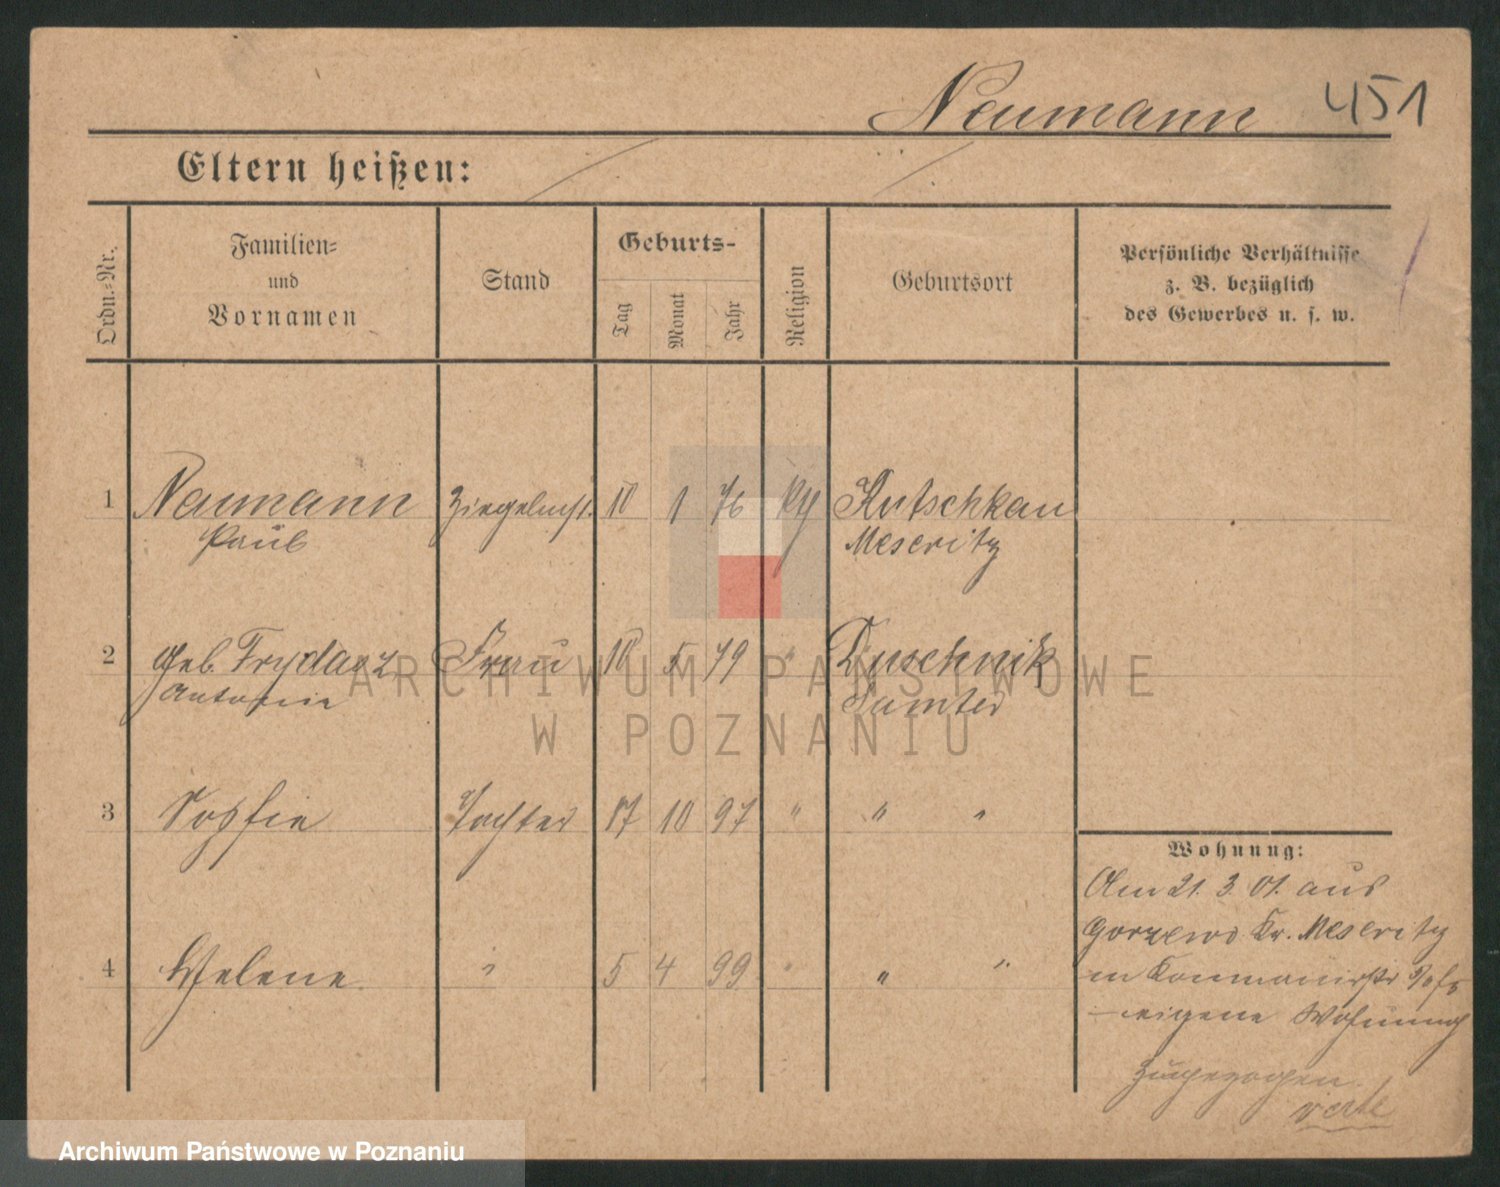 Neumann 451
Eltern heißen:
Ordn.-Nr.
Familien-
und
Vornamen
Stand
Geburts-
Tag
Monat
Jahr
Religion
Geburtsort
Persönliche Verhältnisse
z. B. bezüglich
des Gewerbes u. s. w.
1 Neumann 10 1 76 Kutschkau
Paul Meseritz
2 geb. Frydarz Frau 10 5 79 " Duschnik
Antonie Samter
3 Sophie Tochter 17 10 97 " " "
4 Helene " 5 4 99 " " "
Wohnung:
Am 21. 3. 01. aus
Gorzewo Kr. Meseritz
in
eigene Wohnung
zugezogen.
verte
ARCHIWUM PAŃSTWOWE
W POZNANIU
Archiwum Państwowe w Poznaniu